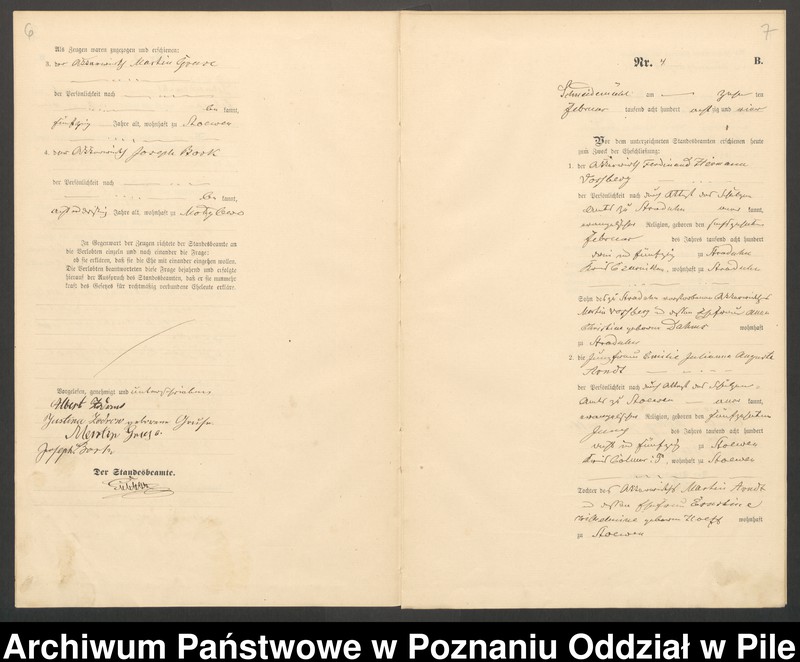 6
Als Zeugen waren zugezogen und erschienen:
3. der Ackerwirth Martin Gruse
der Persönlichkeit nach
be kannt,
fünfzig Jahre alt, wohnhaft zu Stoewen
4. der Ackerwirth Joseph Bork
der Persönlichkeit nach
be kannt,
Jahre alt, wohnhaft zu
In Gegenwart der Zeugen richtete der Standesbeamte an
die Verlobten einzeln und nach einander die Frage:
ob sie erklären, daß sie die Ehe mit einander eingehen wollen.
Die Verlobten beantworteten diese Frage bejahend und erfolgte
hierauf der Ausspruch des Standesbeamten, daß er sie nunmehr
kraft des Gesetzes für rechtmäßig verbundene Eheleute erkläre.
Vorgelesen, genehmigt und unterschrieben
Justina geborene
Joseph Bork
Der Standesbeamte.
7
Nr. 4 B.
Schneidemühl am ten
Februar tausend acht hundert achtzig und vier
Vor dem unterzeichneten Standesbeamten erschienen heute
zum Zweck der Eheschließung:
1. der Ackerwirth Ferdinand Hermann
Vossberg
der Persönlichkeit nach durch Attest des Schulzen
Amts zu Straduhn kannt,
evangelischer Religion, geboren den fünfzehnten
Februar des Jahres tausend acht hundert
und fünfzig zu Straduhn
Kreis Czarnikau, wohnhaft zu Straduhn
Sohn des zu Straduhn verstorbenen Ackerwirths
Martin Vossberg und dessen Ehefrau Anna
Christine geborene Dahms wohnhaft
zu Straduhn
2. die Jungfrau Emilie Julianna Auguste
Arndt
der Persönlichkeit nach durch Attest des Schulzen-
Amts zu Stoewen aner kannt,
evangelischer Religion, geboren den fünfzehnten
des Jahres tausend acht hundert
und fünfzig zu Stoewen
Kreis Colmar i/P., wohnhaft zu Stoewen
Tochter des Ackerwirths Martin Arndt
und dessen Ehefrau Ernstine
Wilhelmine geborene wohnhaft
zu Stoewen
Archiwum Państwowe w Poznaniu Oddział w Pile